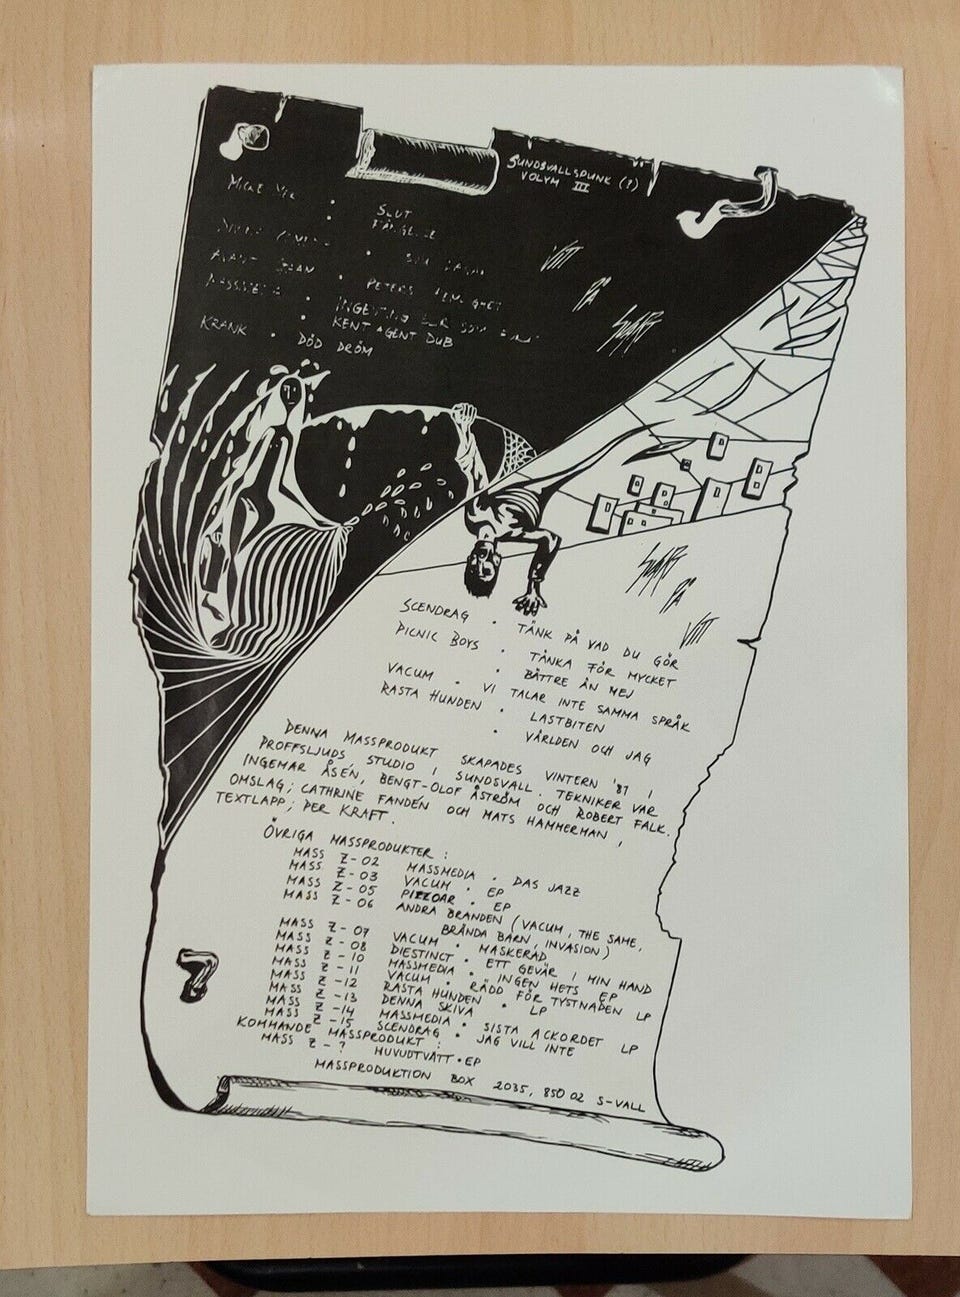 SUNDSVALLSPUNK (?)
VOLYM III
SLUT
VITT
PÅ
SVART
PETERS
INGENTING
KENT AGENT DUB
KRANK • DÖD DRÖM
SVART
PÅ
VITT
SCENDRAG • TÄNK PÅ VAD DU GÖR
PICNIC BOYS • TÄNKA FÖR MYCKET
• BÄTTRE ÄN MEJ
VACUM • VI TALAR INTE SAMMA SPRÅK
RASTA HUNDEN • LASTBITEN
• VÄRLDEN OCH JAG
DENNA MASSPRODUKT SKAPADES VINTERN '81 I
PROFFSLJUDS STUDIO I SUNDSVALL. TEKNIKER VAR
INGEMAR ÅSÉN, BENGT-OLOF ÅSTRÖM OCH ROBERT FALK.
OMSLAG; CATHRINE FANDÉN OCH MATS HAMMERMAN,
TEXTLAPP; PER KRAFT.
ÖVRIGA MASSPRODUKTER:
MASS Z-02 MASSMEDIA • DAS JAZZ
MASS Z-03 VACUM • EP
MASS Z-05 PIZZOAR • EP
MASS Z-06 ANDRA BRANDEN (VACUM, THE SAME,
BRÄNDA BARN, INVASION)
MASS Z-07 VACUM • MASKERAD
MASS Z-08 DIESTINCT • ETT GEVÄR I MIN HAND
MASS Z-10 MASSMEDIA • INGEN HETS EP
MASS Z-11 VACUM • RÄDD FÖR TYSTNADEN LP
MASS Z-12 RASTA HUNDEN • LP
MASS Z-13 DENNA SKIVA
MASS Z-14 MASSMEDIA • SISTA ACKORDET LP
MASS Z-15 SCENDRAG • JAG VILL INTE
KOMMANDE MASSPRODUKT:
MASS Z-? HUVUDTVÄTT • EP
MASSPRODUKTION BOX 2035, 850 02 S-VALL